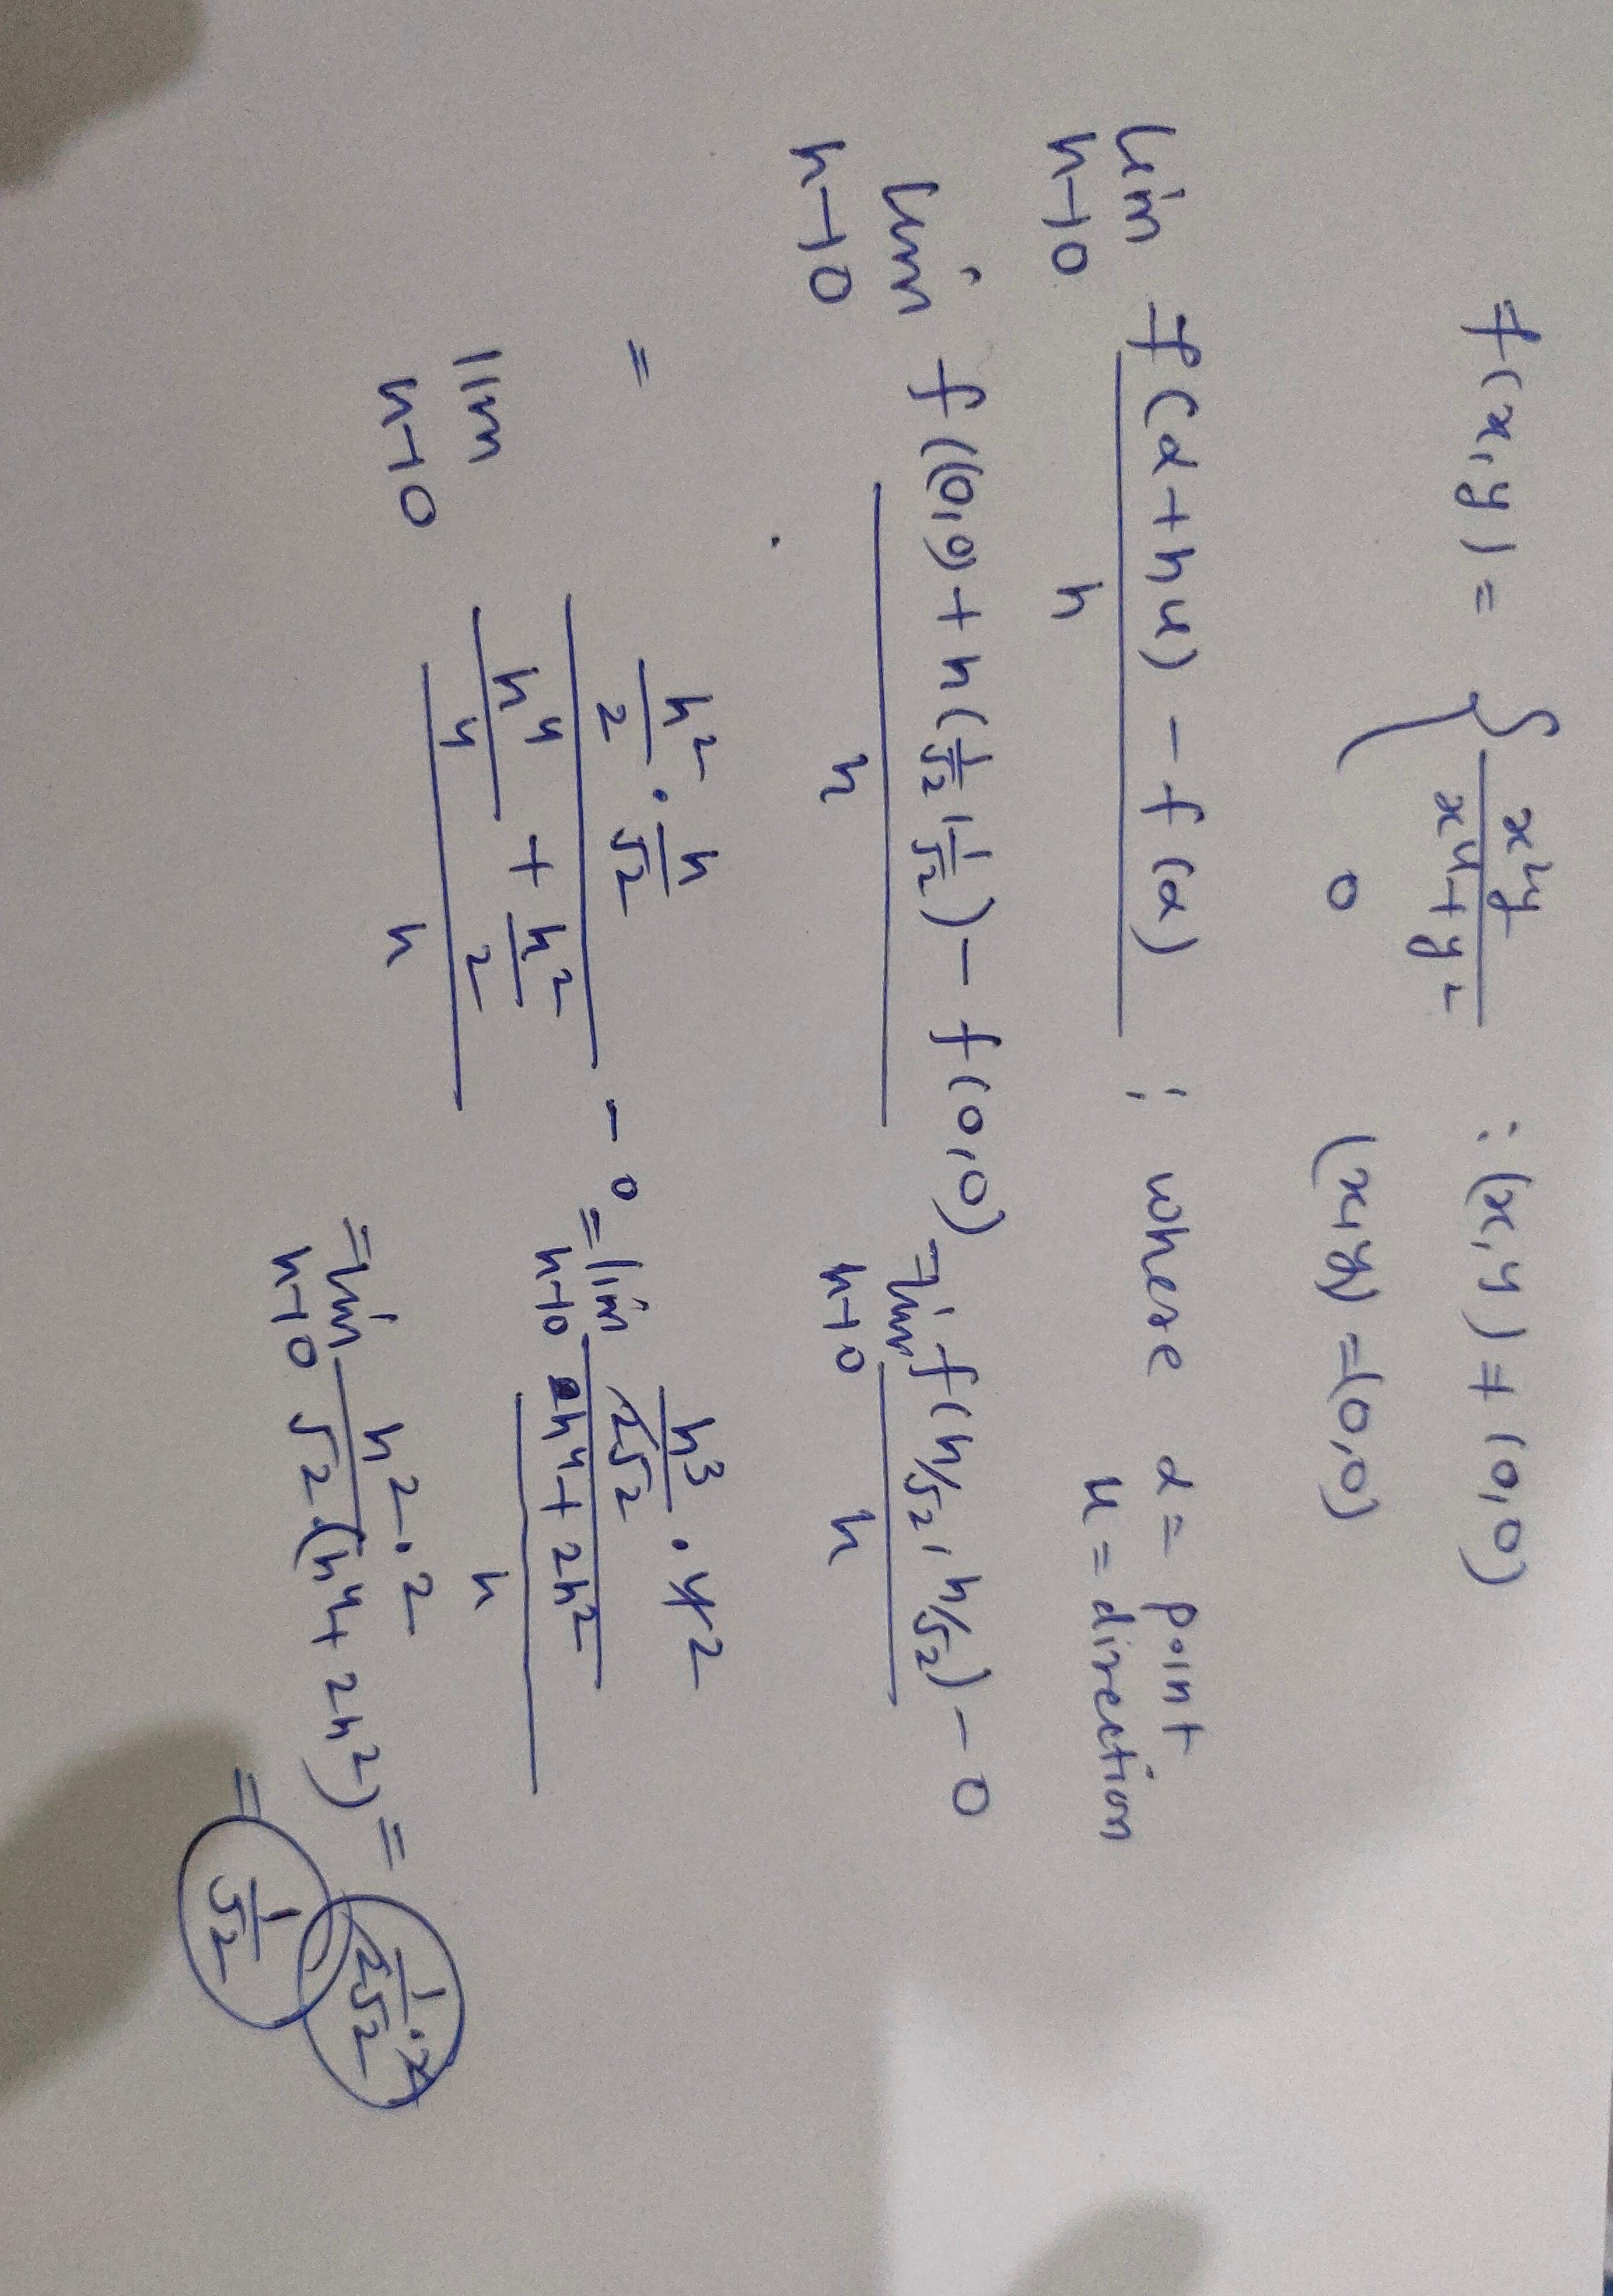 f(x,y) = { x²y / x⁴+y² : (x,y) ≠ (0,0)
0 (x,y) = (0,0)
lim h→0 f(α+hu) - f(α) / h ; where α = point
u = direction
lim h→0 f((0,0) + h(1/√2, 1/√2)) - f(0,0) / h = lim h→0 f(h/√2, h/√2) - 0 / h
= lim h→0 h²/2 · h/√2 / h⁴/4 + h²/2 - 0 / h = lim h→0 h³/2√2 · 4 2 / h⁴ + 2h² / h
= lim h→0 h² · 2 / √2 (h⁴ + 2h²) = 1/2√2 · 2
= 1/√2